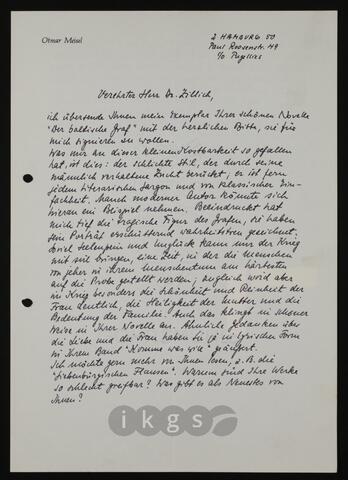 Otmar Meisel
2 HAMBURG 50
Paul Roosenstr. 49
c/o Pupllies
Verehrter Herr Dr. Zillich,
ich übersende Ihnen mein Exemplar Ihrer schönen Novelle
"Der baltische Graf" mit der herzlichen Bitte, sie für
mich signieren zu wollen.
Was mir an dieser kleinen Kostbarkeit so gefallen
hat, ist dies: der schlichte Stil, der durch seine
männlich verhaltene Zucht berückt; er ist fern
jedem literarischen Jargon und von klassischer Ein-
fachheit. Manch moderner Autor könnte sich
hieran ein Beispiel nehmen. Beeindruckt hat
mich tief die tragische Figur des Grafen, sie haben
sein Porträt erschütternd wahrheitsvoll gezeichnet.
Soviel Seelenpein und Unglück kann nur der Krieg
mit sich bringen, eine Zeit, in der die Menschen
von jeher in ihrem Menschentum am härtesten
auf die Probe gestellt werden; zugleich wird aber
im Krieg besonders die Schönheit und Reinheit der
Frau deutlich, die Heiligkeit der Mutter und die
Bedeutung der Familie. Auch das klingt in schöner
Weise in Ihrer Novelle an. Ähnliche Gedanken über
die Liebe und die Frau haben Sie ja in lyrischer Form
in Ihrem Band "Komme was will" geäußert.
Ich möchte gern mehr von Ihnen lesen, z.B. die
"Siebenbürgischen Flausen". Warum sind Ihre Werke
so schlecht greifbar? Was gibt es als Neuestes von
Ihnen?
ikgs